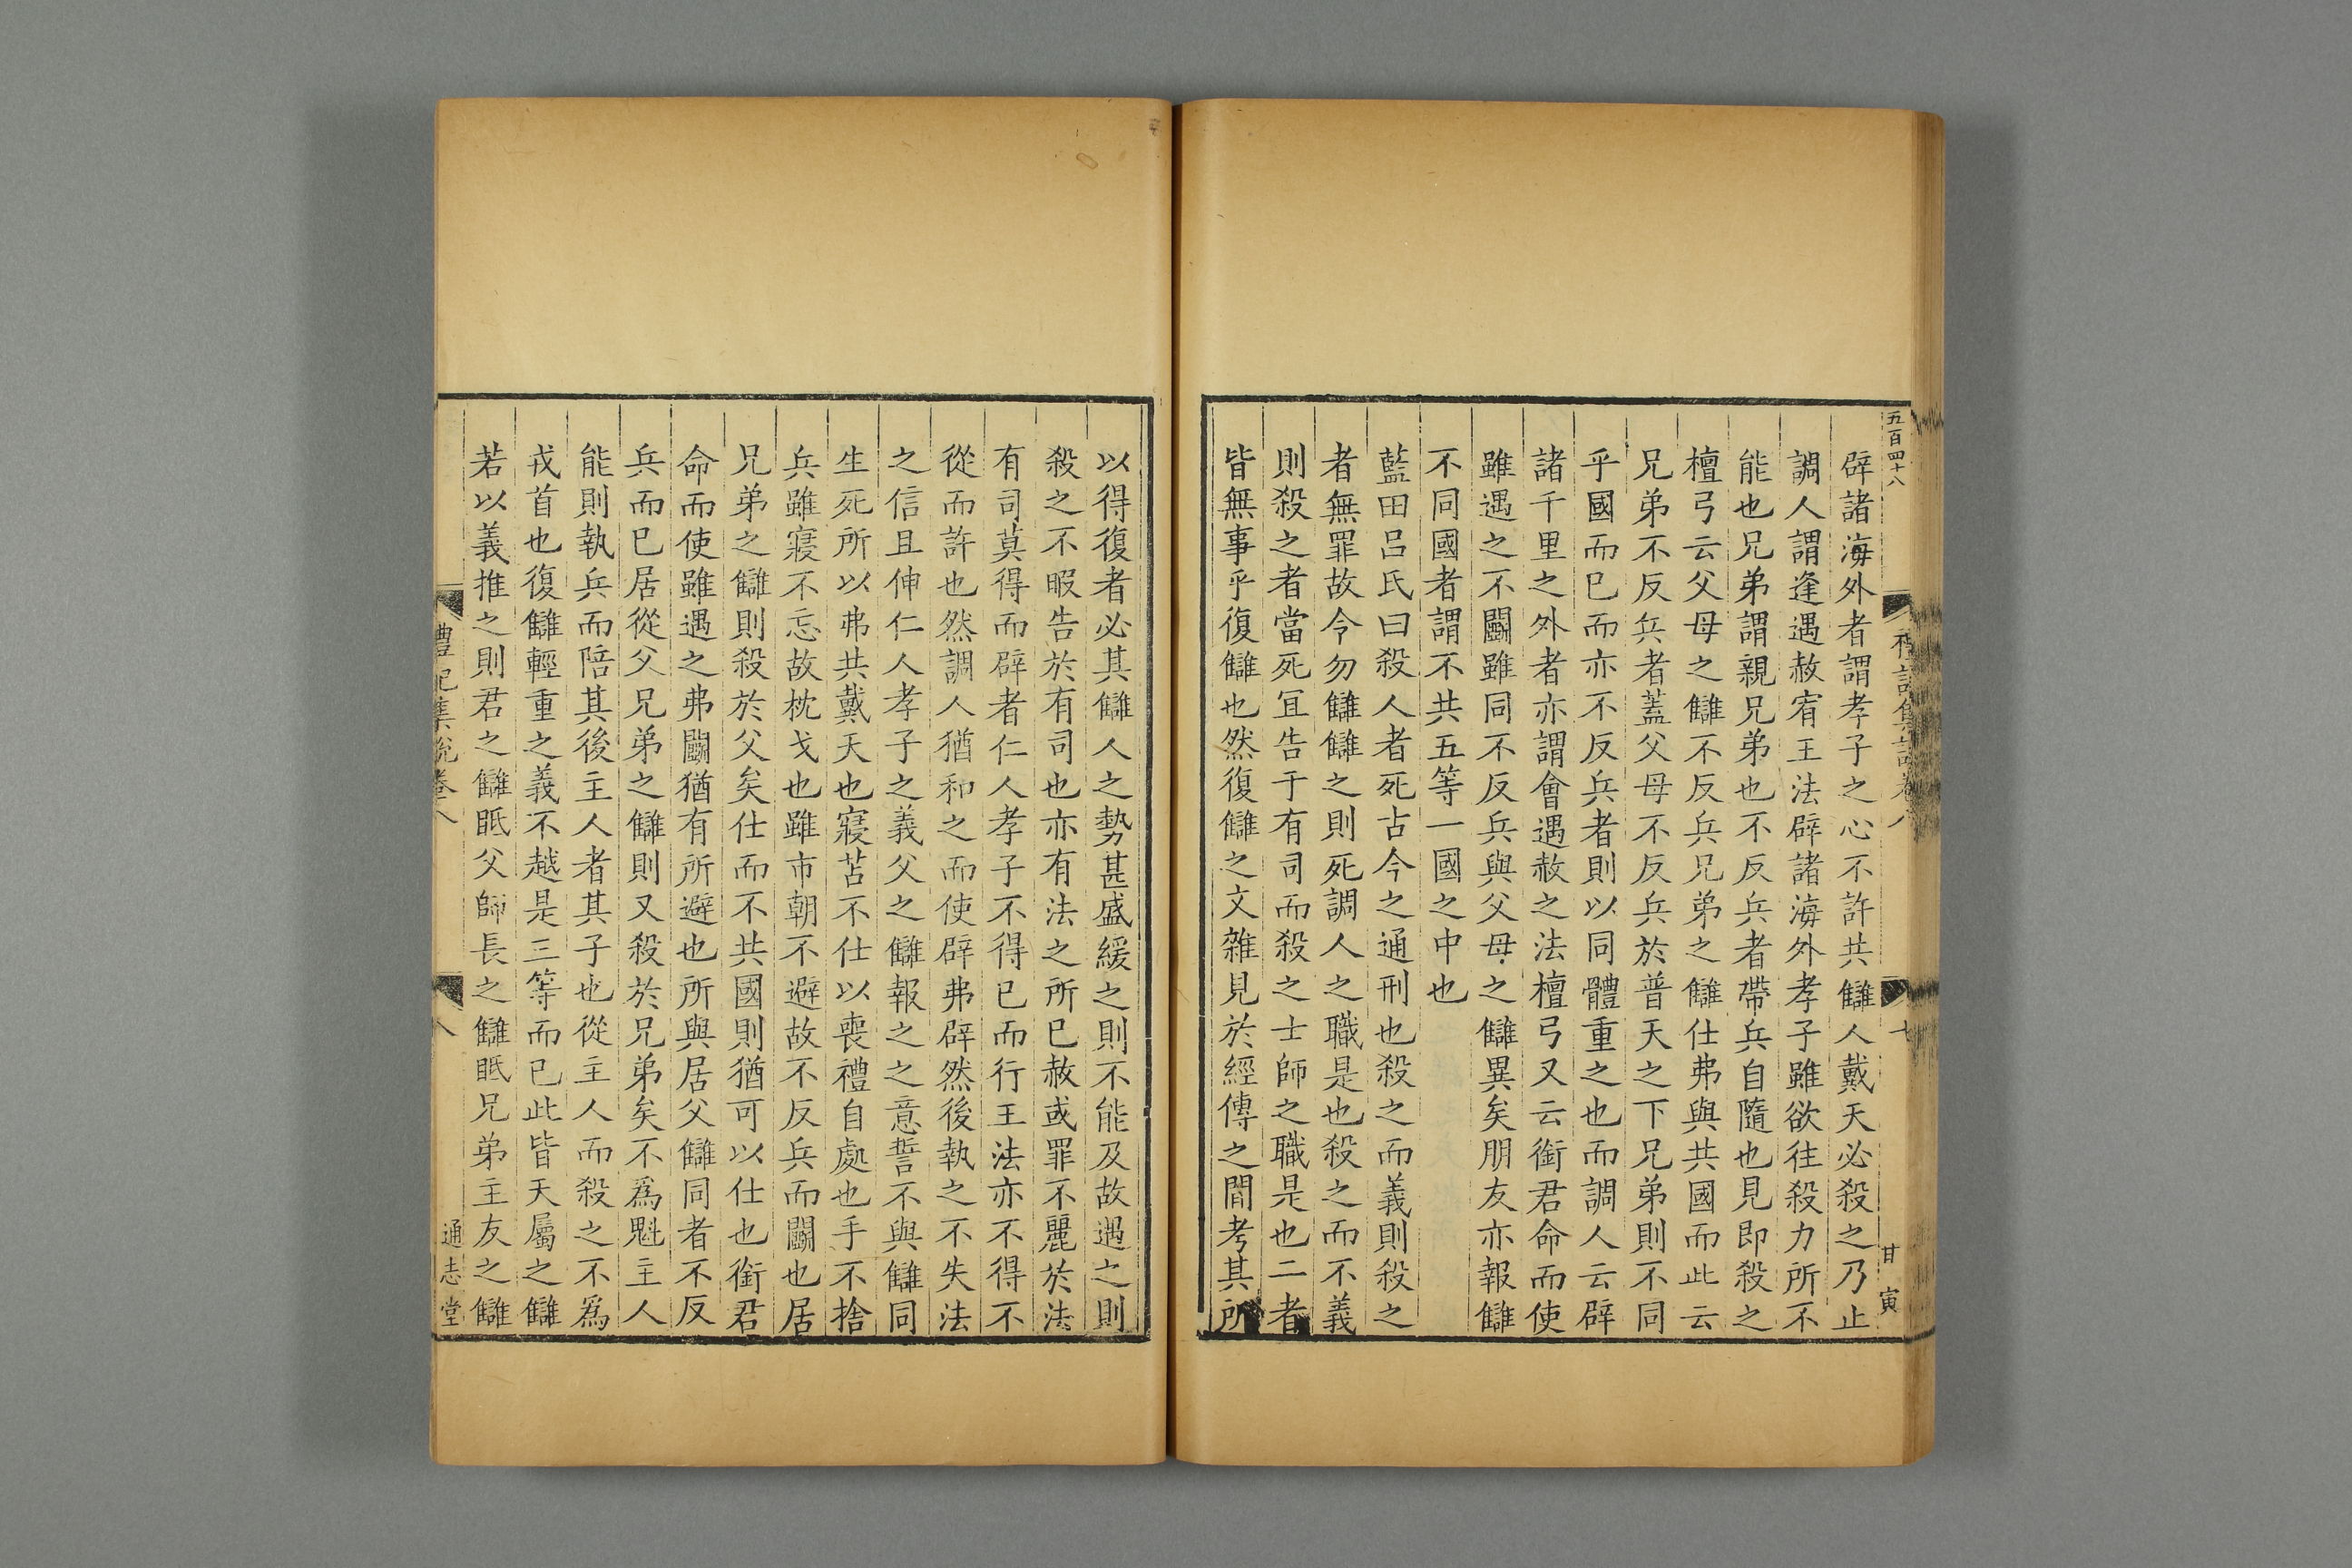 五百四十八
禮記集說卷八
七
甘寅
辟諸海外者謂孝子之心不許共讎人戴天必殺之乃止
調人謂逢遇赦宥王法辟諸海外孝子雖欲往殺力所不
能也兄弟謂親兄弟也不反兵者帶兵自隨也見即殺之
檀弓云父母之讎不反兵兄弟之讎仕弗與共國而此云
兄弟不反兵者蓋父母不反兵於普天之下兄弟則不同
乎國而已而亦不反兵者則以同體重之也而調人云辟
諸千里之外者亦謂會遇赦之法檀弓又云銜君命而使
雖遇之不鬭雖同不反兵與父母之讎異矣朋友亦報讎
不同國者謂不共五等一國之中也
藍田呂氏曰殺人者死古今之通刑也殺之而義則殺之
者無罪故令勿讎讎之則死調人之職是也殺之而不義
則殺之者當死冝告于有司而殺之士師之職是也二者
皆無事乎復讎也然復讎之文雜見於經傳之間考其所
以得復者必其讎人之勢甚盛緩之則不能及故遇之則
殺之不暇告於有司也亦有法之所已赦或罪不麗於法
有司莫得而辟者仁人孝子不得已而行王法亦不得不
從而許也然調人猶和之而使辟弗辟然後執之不失法
之信且伸仁人孝子之義父之讎報之之意誓不與讎同
生死所以弗共戴天也寢苫不仕以喪禮自處也手不捨
兵雖寢不忘故枕戈也雖市朝不避故不反兵而鬭也居
兄弟之讎則殺於父矣仕而不共國則猶可以仕也銜君
命而使雖遇之弗鬭猶有所避也所與居父讎同者不反
兵而已居從父兄弟之讎則又殺於兄弟矣不爲魁主人
能則執兵而陪其後主人者其子也從主人而殺之不爲
戎首也復讎輕重之義不越是三等而已此皆天屬之讎
若以義推之則君之讎眂父師長之讎眂兄弟主友之讎
禮記集說卷八
八
通志堂